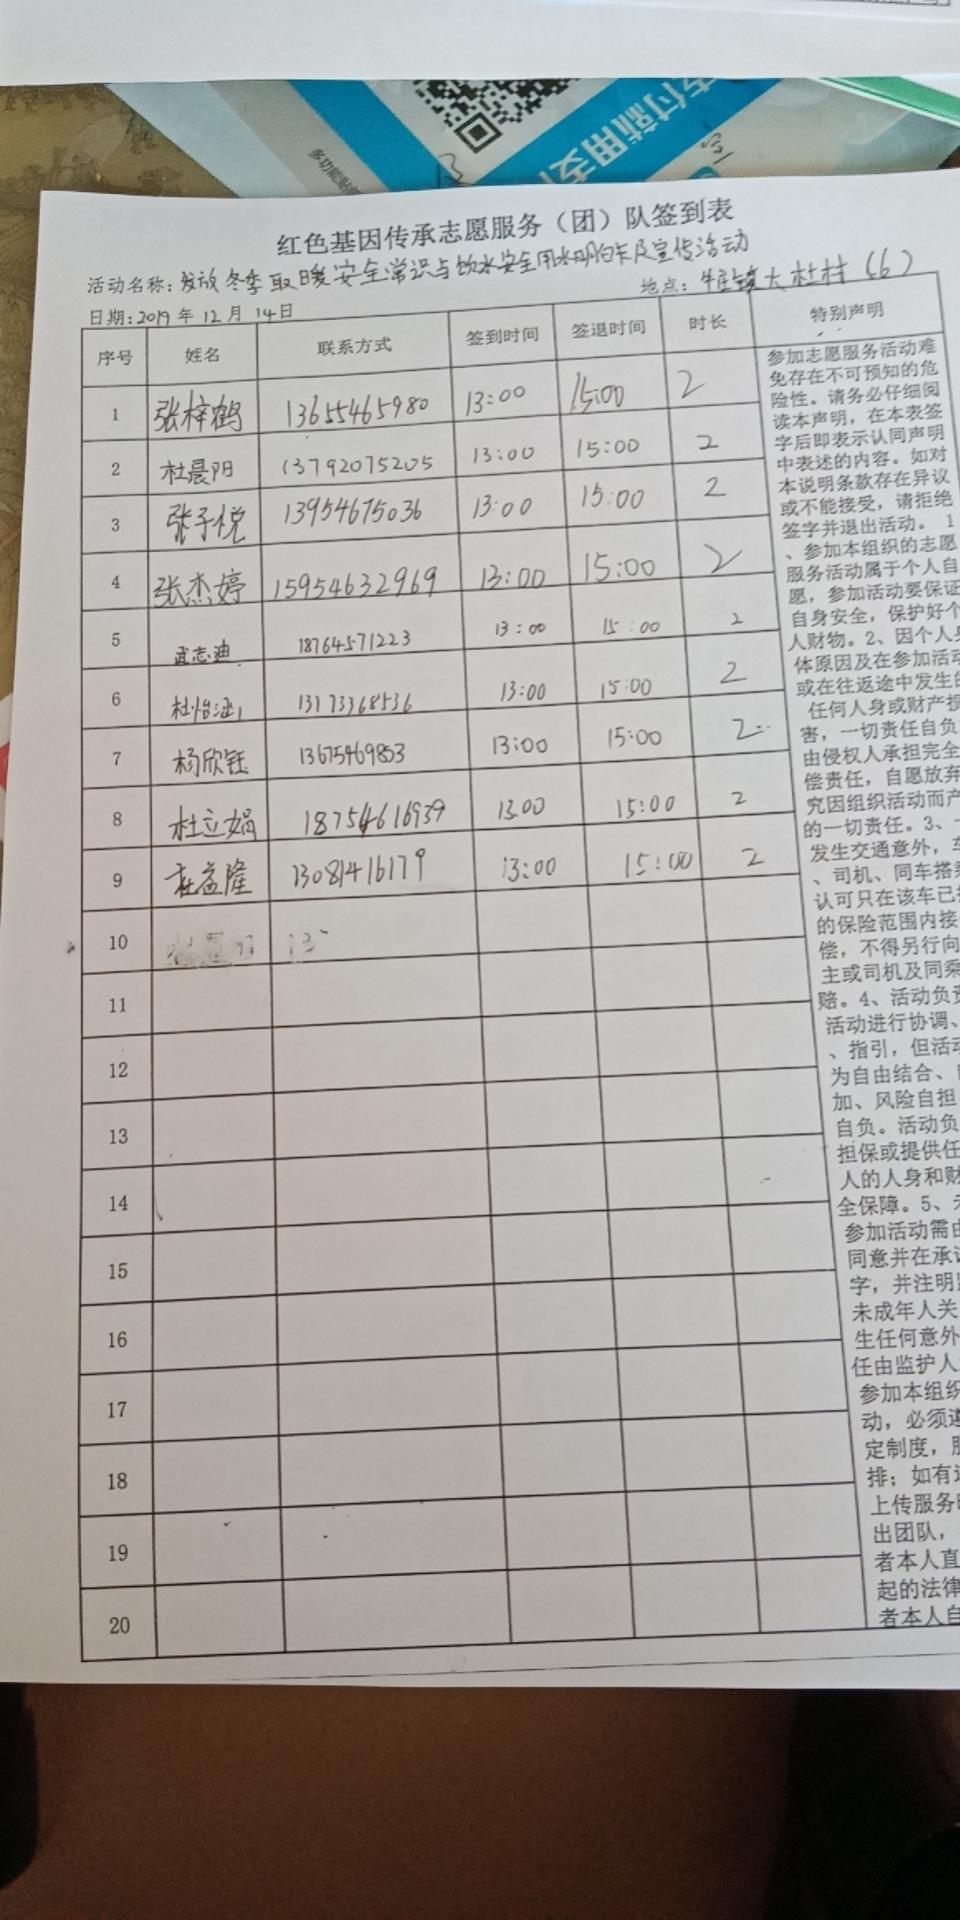 支付就用支
多功能贴
红色基因传承志愿服务（团）队签到表
活动名称：发放冬季取暖安全常识与饮水安全用水明白卡及宣传活动
地点：大杜村（6）
日期：2019年12月14日
序号 姓名 联系方式 签到时间 签退时间 时长 特别声明
1 张梓鹤 13655465980 13:00 15:00 2
2 杜晨阳 13792075205 13:00 15:00 2
3 张子悦 13954675036 13:00 15:00 2
4 张杰婷 15954632969 13:00 15:00 2
5 孟志迪 18764571223 13:00 15:00 2
6 杜怡涵 13173368536 13:00 15:00 2
7 杨欣钰 13675469853 13:00 15:00 2
8 杜立娟 18754616939 13:00 15:00 2
9 杜益隆 13081416179 13:00 15:00 2
10 13
11
12
13
14
15
16
17
18
19
20
参加志愿服务活动难
免存在不可预知的危
险性。请务必仔细阅
读本声明，在本表签
字后即表示认同声明
中表述的内容。如对
本说明条款存在异议
或不能接受，请拒绝
签字并退出活动。 1
、参加本组织的志愿
服务活动属于个人自
愿，参加活动要保证
自身安全，保护好个
人财物。2、因个人身
体原因及在参加活动
或在往返途中发生的
任何人身或财产损
害，一切责任自负
由侵权人承担完全
偿责任，自愿放弃
究因组织活动而产
的一切责任。3、
发生交通意外，车
、司机、同车搭乘
认可只在该车已
的保险范围内接
偿，不得另行向
主或司机及同乘
赔。4、活动负责
活动进行协调、
、指引，但活动
为自由结合、
加、风险自担
自负。活动负
担保或提供任
人的人身和财
全保障。5、未
参加活动需由
同意并在承诺
字，并注明监
未成年人关
生任何意外
任由监护人
参加本组织
动，必须遵
定制度，服
排；如有违
上传服务时
出团队，
者本人直
起的法律
者本人自